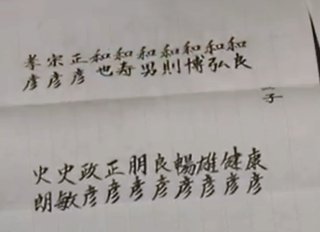 一子
和良
和弘
和博
和則
和男
和寿
和也
正彦
宗彦
孝彦
康彦
健彦
雄彦
暢彦
良彦
朋彦
正彦
政彦
史敏
史朗